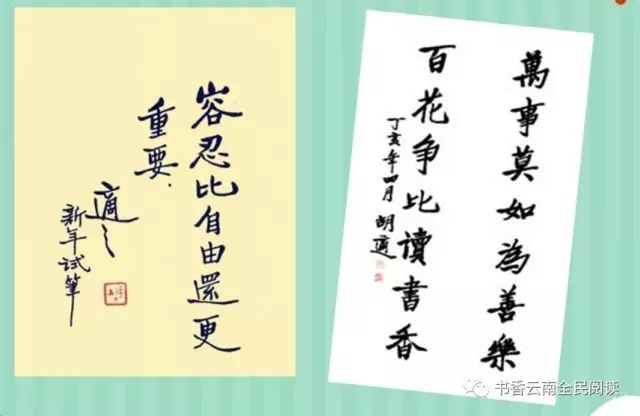 容忍比自由還更
重要.
適之
新年试筆
萬事莫如為善樂
百花争比讀書香
丁亥年四月 胡適
书香云南全民阅读